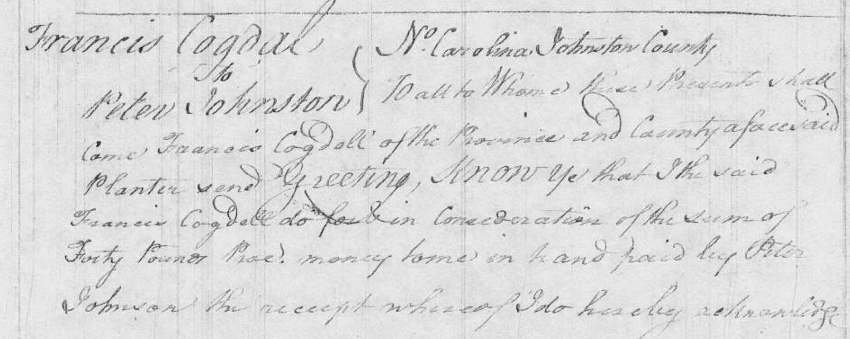 Francis Cogdal } No. Carolina Johnston County
to
Peter Johnston } To all to Whome these Presents shall
Come Francis Cogdell of the Province and County aforesaid
Planter send Greeting, Know Ye that I the said
Francis Cogdell do for & in Consideration of the sum of
Forty Pounds Proc. money to me in hand paid by Peter
Johnson the receipt whereof I do hereby acknowledge